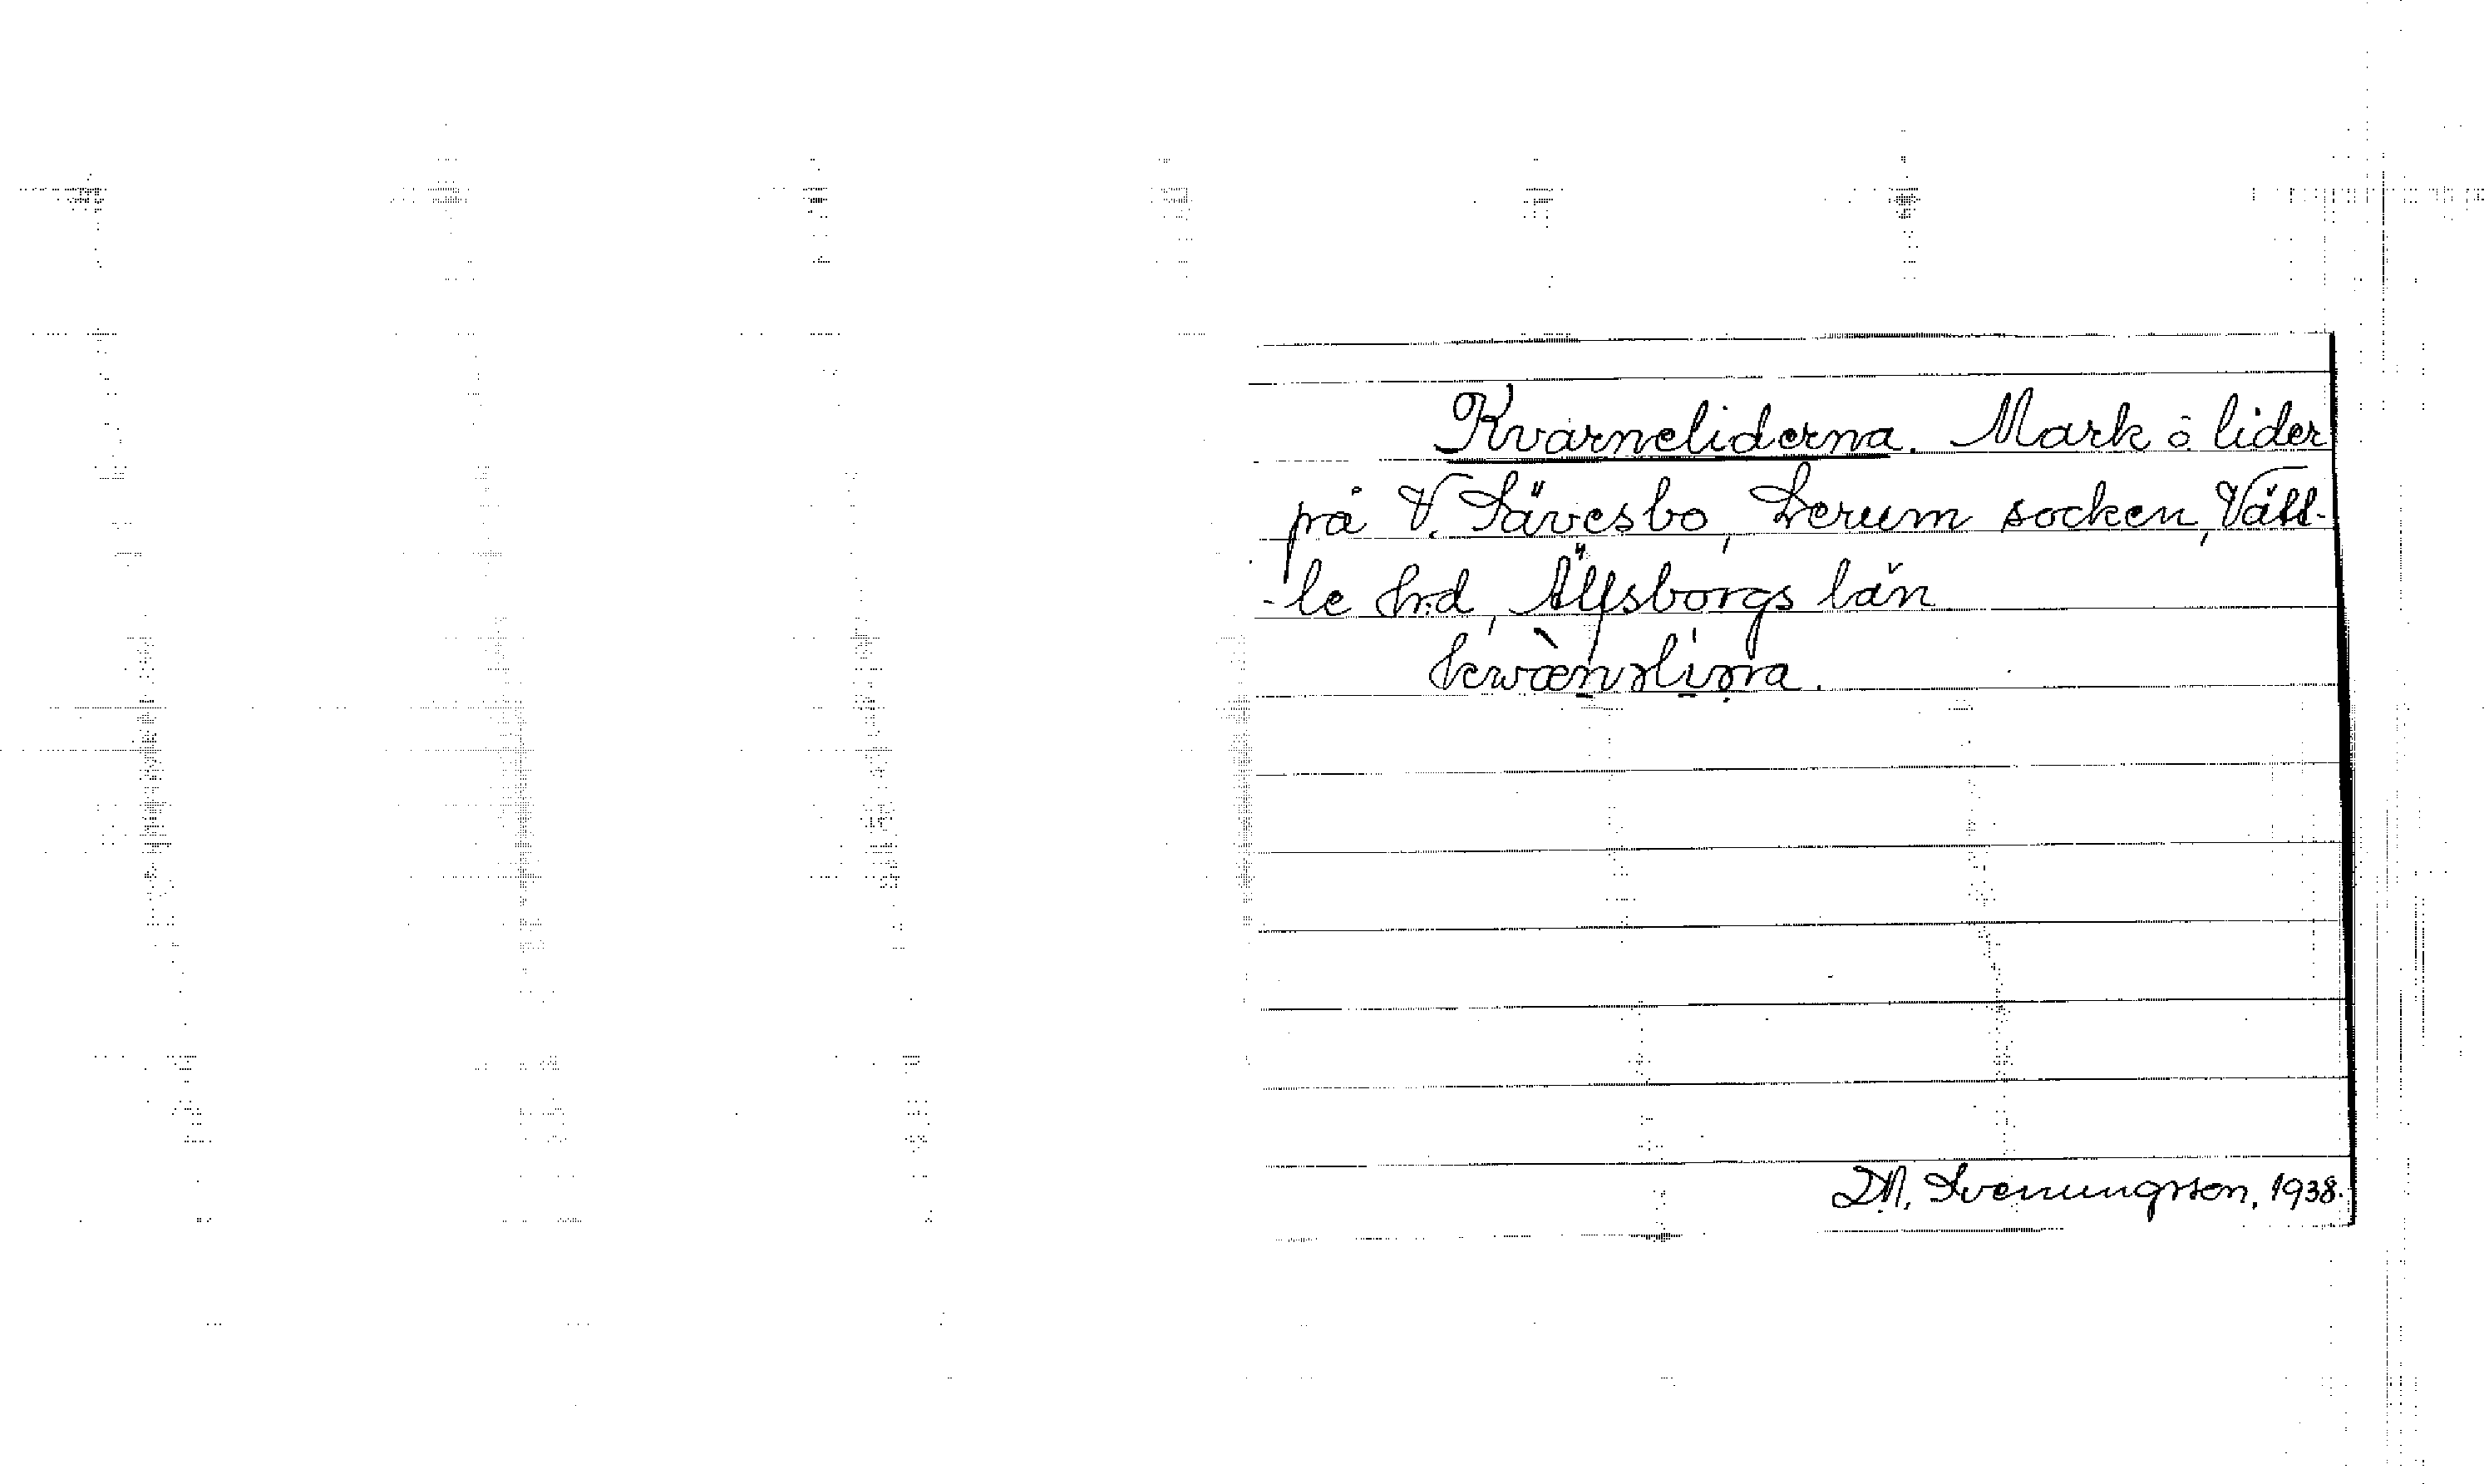 Kvarneliderna. Mark o lider
på V. Sävesbo, Lerum socken, Vätt-
-le hrd, Älfsborgs län
D.N. Svenungsson, 1938.